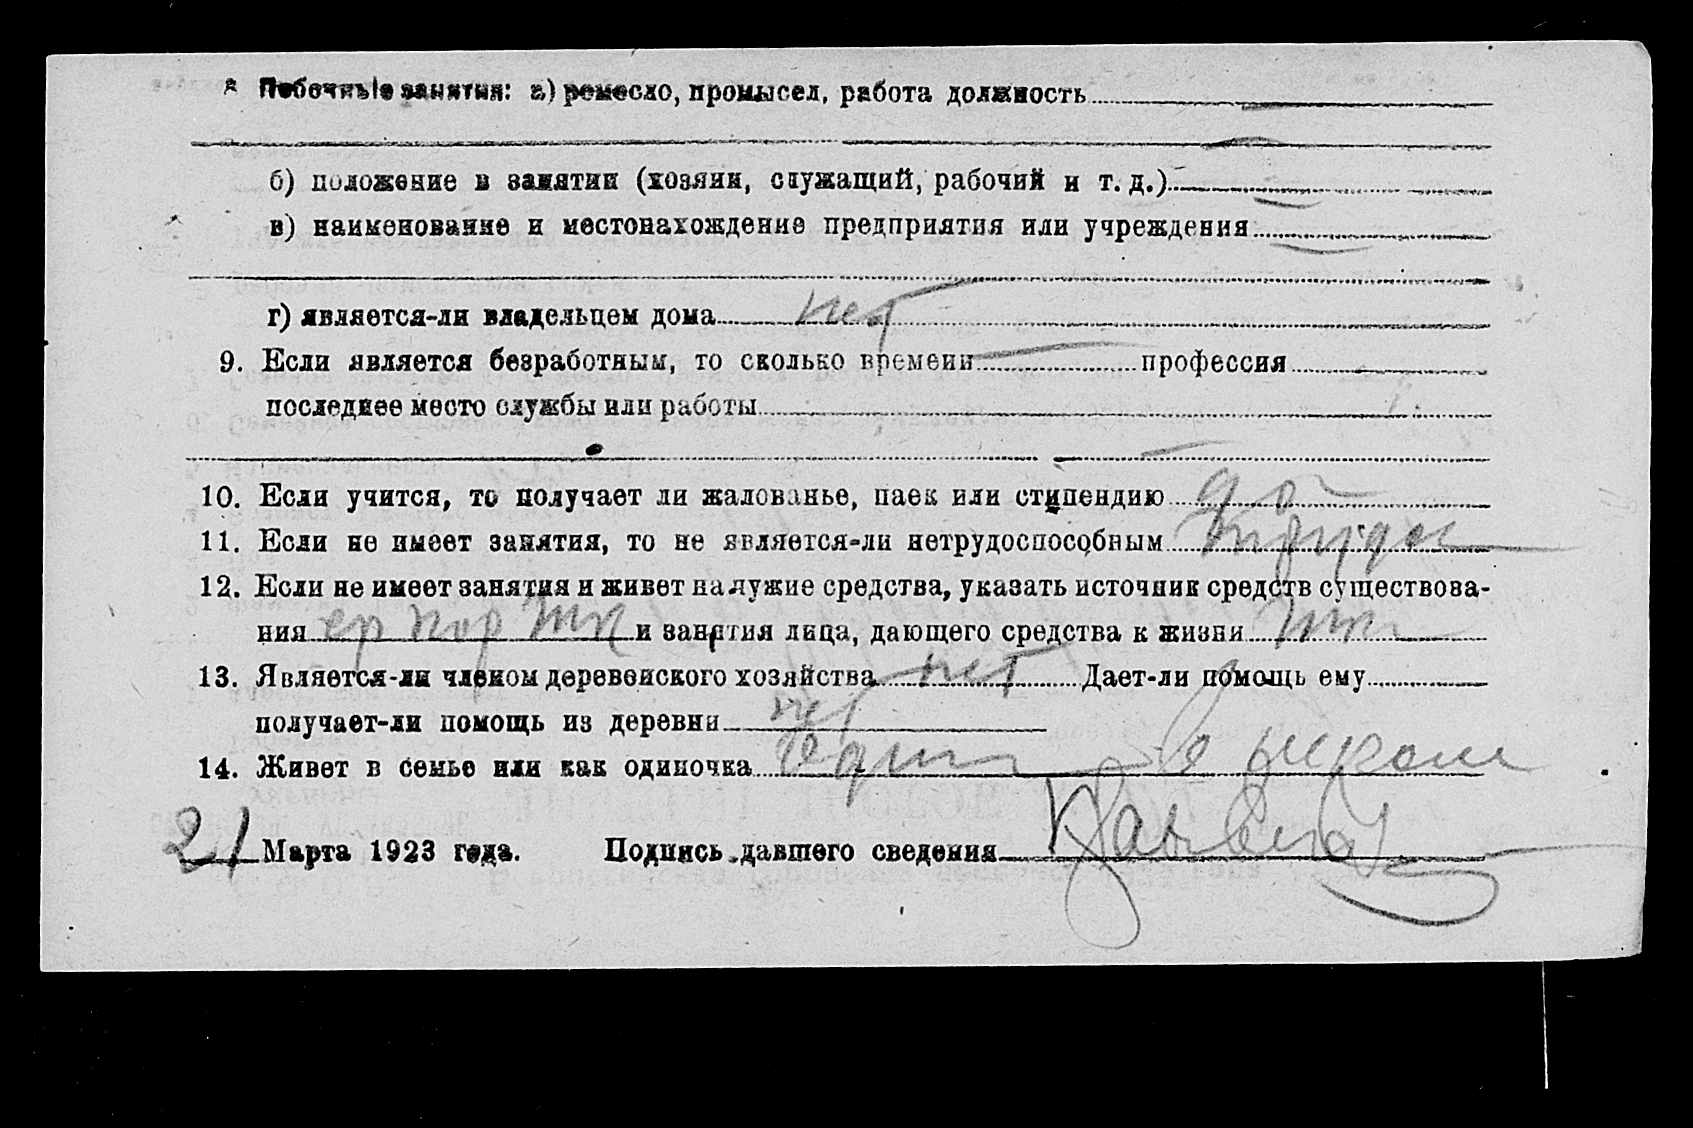 Побочные занятия: а) ремесло, промысел, работа должность
б) положение в занятии (хозяин, служащий, рабочий и т. д.)
в) наименование и местонахождение предприятия или учреждения
г) является-ли владельцем дома нет
9. Если является безработным, то сколько времени профессия
последнее место службы или работы
10. Если учится, то получает ли жалованье, паек или стипендию
11. Если не имеет занятия, то не является-ли нетрудоспособным
12. Если не имеет занятия и живет на чужие средства, указать источник средств существова-
ния и занятия лица, дающего средства к жизни
13. Является-ли членом деревенского хозяйства нет Дает-ли помощь ему
получает-ли помощь из деревни нет
14. Живет в семье или как одиночка
21 Марта 1923 года. Подпись давшего сведения